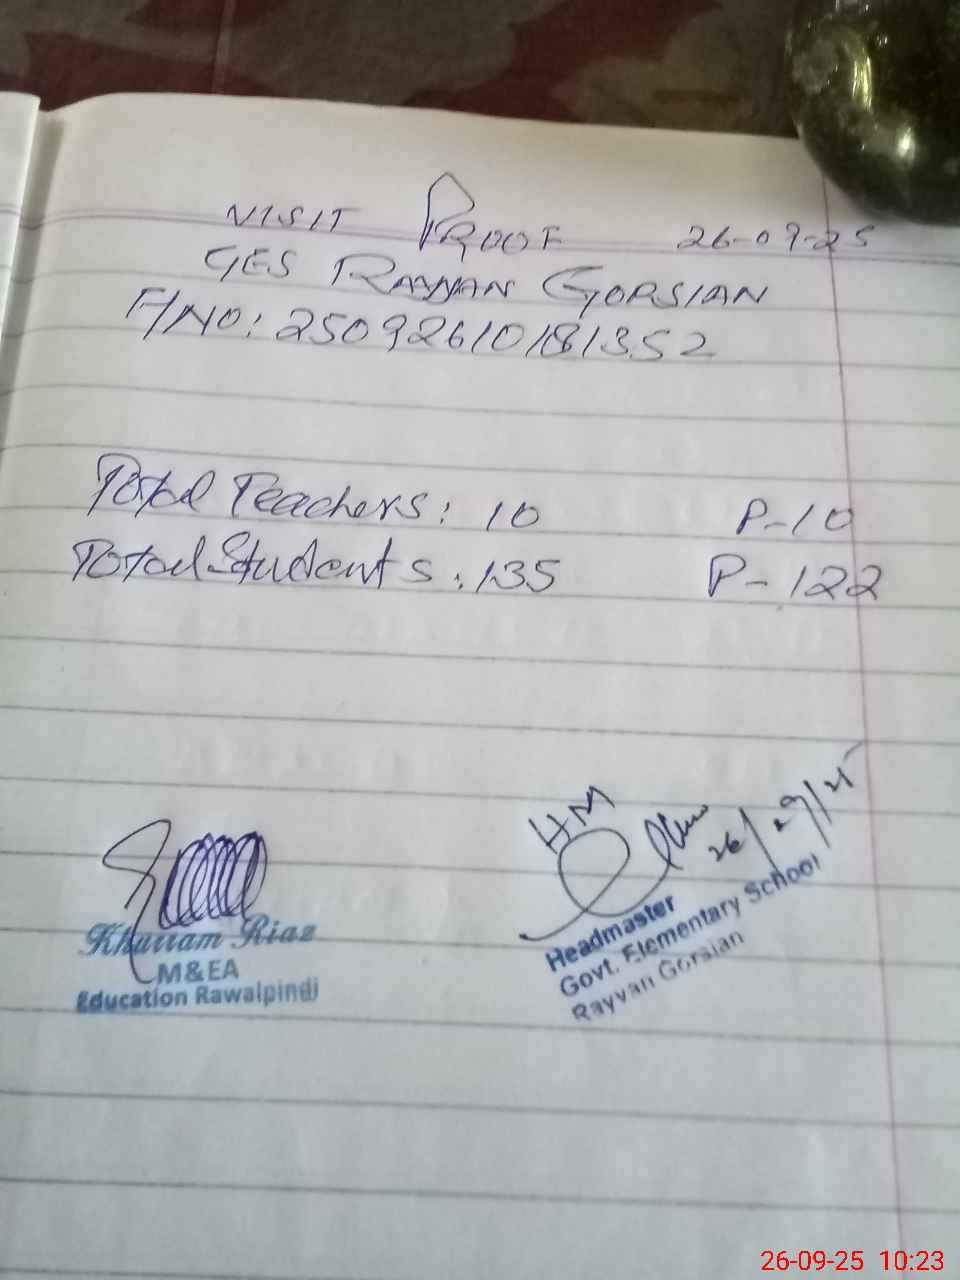 VISIT PROOF 26-09-25
GES RAYYAN GORSIAN
F/NO: 25092610181352
Total Teachers: 10 P-10
Total Students: 135 P-122
HM
26/09/25
Khurram Riaz
M&EA
Education Rawalpindi
Headmaster
Govt. Elementary School
Rayyan Gorsian
26-09-25 10:23